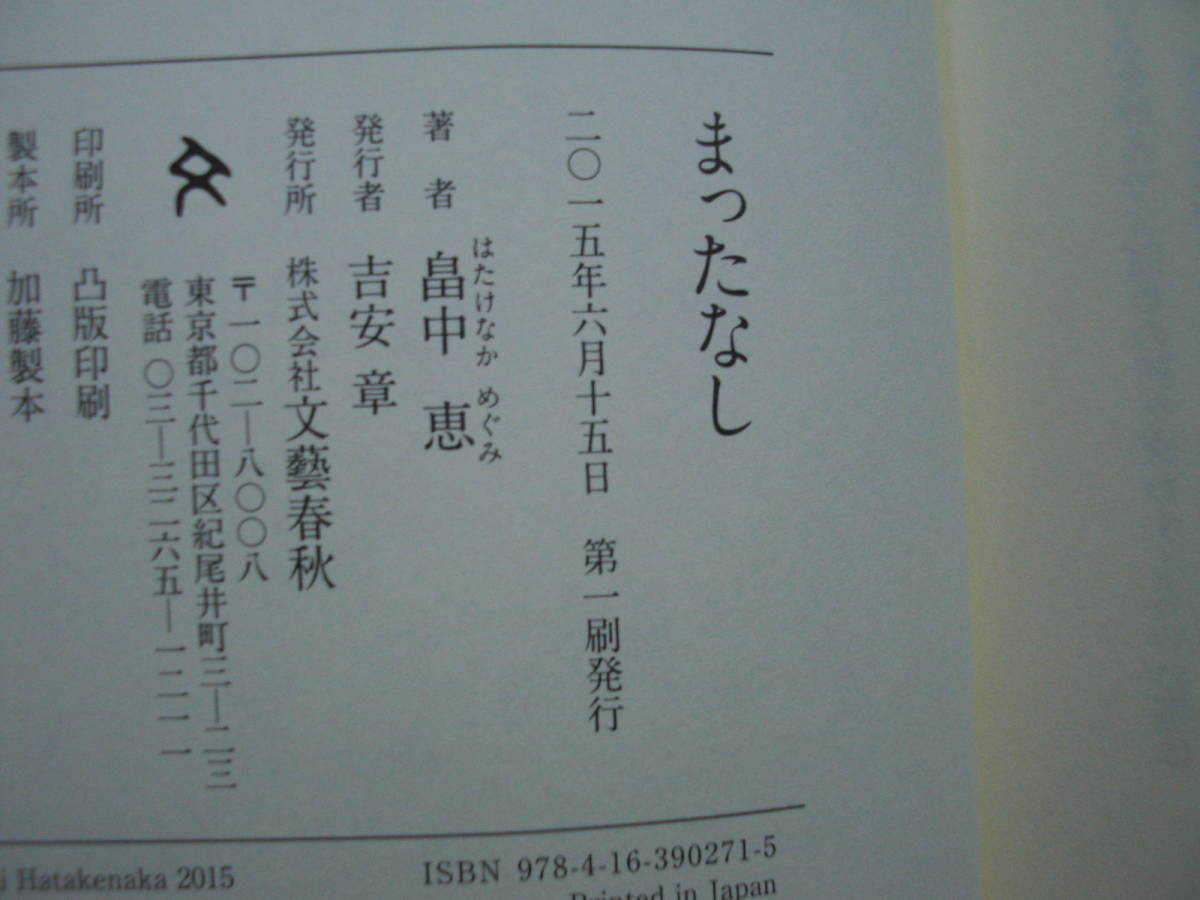 まったなし
二〇一五年六月十五日　第一刷発行
著者　畠中　恵
はたけなか　めぐみ
発行者　吉安　章
発行所　株式会社文藝春秋
〒一〇二―八〇〇八
東京都千代田区紀尾井町三―二三
電話　〇三―三二六五―一二一一
印刷所　凸版印刷
製本所　加藤製本
i Hatakenaka 2015
ISBN 978-4-16-390271-5
Printed in Japan